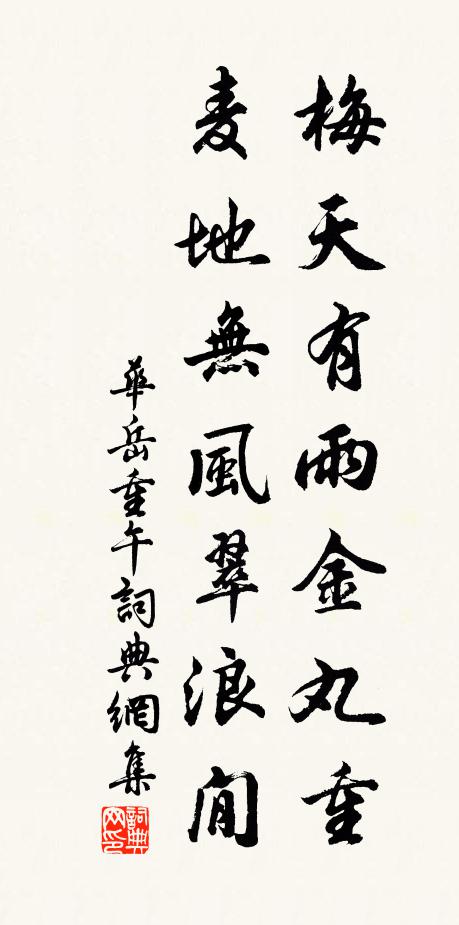 梅天有雨金丸重
麦地無風翠浪閒
華岳重午詞典網集
詞典
网印